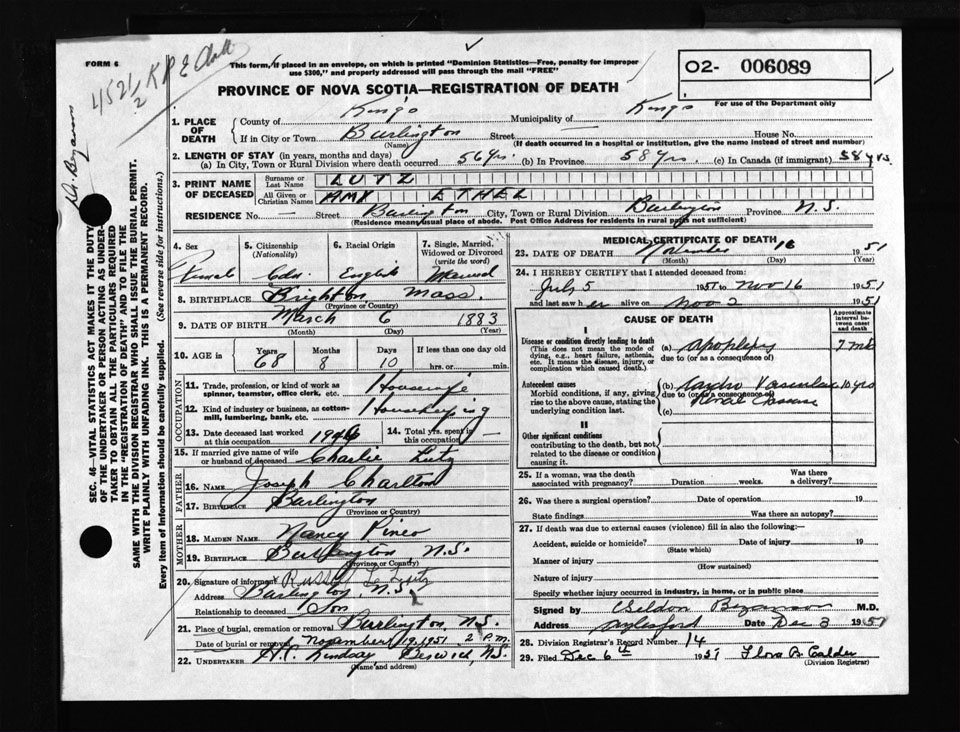 FORM 6
4521/2 K P E
Dr. Bezanson
This form, if placed in an envelope, on which is printed "Dominion Statistics—Free, penalty for improper
use $300," and properly addressed will pass through the mail "FREE"
PROVINCE OF NOVA SCOTIA—REGISTRATION OF DEATH
02- 006089
For use of the Department only
SEC. 46—VITAL STATISTICS ACT MAKES IT THE DUTY
OF THE UNDERTAKER OR PERSON ACTING AS UNDER-
TAKER TO OBTAIN ALL THE PARTICULARS REQUIRED
IN THE "REGISTRATION OF DEATH" AND TO FILE THE
SAME WITH THE DIVISION REGISTRAR WHO SHALL ISSUE THE BURIAL PERMIT.
WRITE PLAINLY WITH UNFADING INK. THIS IS A PERMANENT RECORD.
Every item of Information should be carefully supplied. (See reverse side for instructions.)
1. PLACE OF DEATH
County of Kings Municipality of Kings
If in City or Town Burlington Street House No.
(Name) (If death occurred in a hospital or institution, give the name instead of street and number)
2. LENGTH OF STAY (in years, months and days)
(a) In City, Town or Rural Division where death occurred 56 Yrs. (b) In Province 58 Yrs. (c) In Canada (if immigrant) 58 yrs.
3. PRINT NAME OF DECEASED
Surname or Last Name LUTZ
All Given or Christian Names AMY ETHEL
RESIDENCE No. — Street Burlington City, Town or Rural Division Burlington Province N.S.
(Residence means usual place of abode. Post Office Address for residents in rural parts not sufficient)
4. Sex Female
5. Citizenship (Nationality) Cdn.
6. Racial Origin English
7. Single, Married, Widowed or Divorced (write the word) Married
8. BIRTHPLACE Brighton Mass.
(Province or Country)
9. DATE OF BIRTH March 6 1883
(Month) (Day) (Year)
10. AGE in Years 68 Months 8 Days 10 If less than one day old hrs. or min.
OCCUPATION
11. Trade, profession, or kind of work as spinner, teamster, office clerk, etc. Housewife
12. Kind of industry or business, as cotton-mill, lumbering, bank, etc. Housekeeping
13. Date deceased last worked at this occupation 1946
14. Total yrs. spent in this occupation —
15. If married give name of wife or husband of deceased Charlie Lutz
FATHER
16. Name Joseph Charlton
17. Birthplace Burlington
(Province or Country)
MOTHER
18. MAIDEN NAME Nancy Pineo
19. BIRTHPLACE Burlington, N.S.
(Province or Country)
20. Signature of informant Russel L Lutz
Address Burlington, N.S.
Relationship to deceased Son
21. Place of burial, cremation or removal Burlington, N.S.
Date of burial or removal November 19, 1951 2 P.M.
22. UNDERTAKER H.C. Lindsay, Berwick, N.S.
(Name and address)
MEDICAL CERTIFICATE OF DEATH
23. DATE OF DEATH November 16 1951
(Month) (Day)
24. I HEREBY CERTIFY that I attended deceased from:
July 5 1951 to Nov 16 1951
and last saw her alive on Nov 2 1951
CAUSE OF DEATH
Approximate interval between onset and death
I
Disease or condition directly leading to death
(This does not mean the mode of dying, e.g., heart failure, asthenia, etc. It means the disease, injury, or complication which caused death.)
(a) Apoplexy
due to (or as a consequence of)
Antecedent causes
Morbid conditions, if any, giving rise to the above cause, stating the underlying condition last.
(b) Cardio Vascular 10 yrs
due to (or as a consequence of)
Renal disease
(c)
II
Other significant conditions
contributing to the death, but not related to the disease or condition causing it.
25. If a woman, was the death associated with pregnancy? Duration weeks. Was there a delivery?
26. Was there a surgical operation? Date of operation 19
State findings Was there an autopsy?
27. If death was due to external causes (violence) fill in also the following:—
Accident, suicide or homicide? Date of injury 19
(State which)
Manner of injury
(How sustained)
Nature of injury
Specify whether injury occurred in industry, in home, or in public place
Signed by Bezanson M.D.
Address Aylesford Date Dec 3 1951
28. Division Registrar's Record Number 14
29. Filed Dec 6th 1951 Flora B Calder
(Division Registrar)